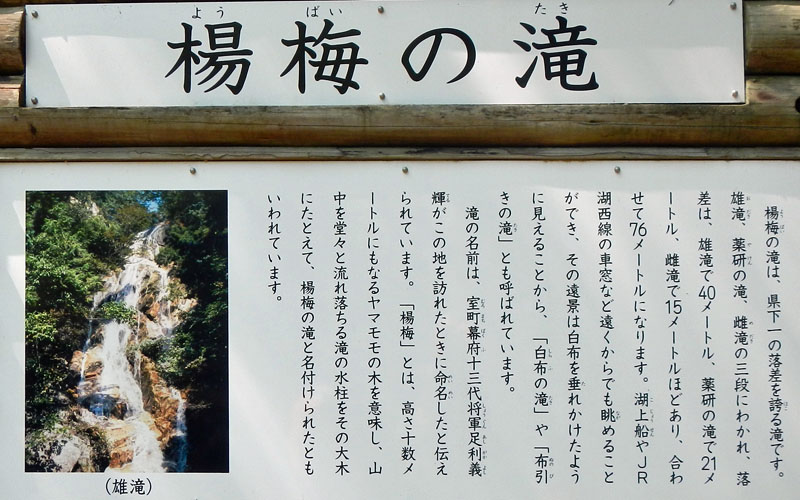 楊梅の滝
よう ばい たき
楊梅の滝は、県下一の落差を誇る滝です。
雄滝、薬研の滝、雌滝の三段にわかれ、落
差は、雄滝で40メートル、薬研の滝で21メ
ートル、雌滝で15メートルほどあり、合わ
せて76メートルになります。湖上船やJR
湖西線の車窓など遠くからでも眺めること
ができ、その遠景は白布を垂れかけたよう
に見えることから、「白布の滝」や「布引
きの滝」とも呼ばれています。
滝の名前は、室町幕府十三代将軍足利義
輝がこの地を訪れたときに命名したと伝え
られています。「楊梅」とは、高さ十数メ
ートルにもなるヤマモモの木を意味し、山
中を堂々と流れ落ちる滝の水柱をその大木
にたとえて、楊梅の滝と名付けられたとも
いわれています。
(雄滝)